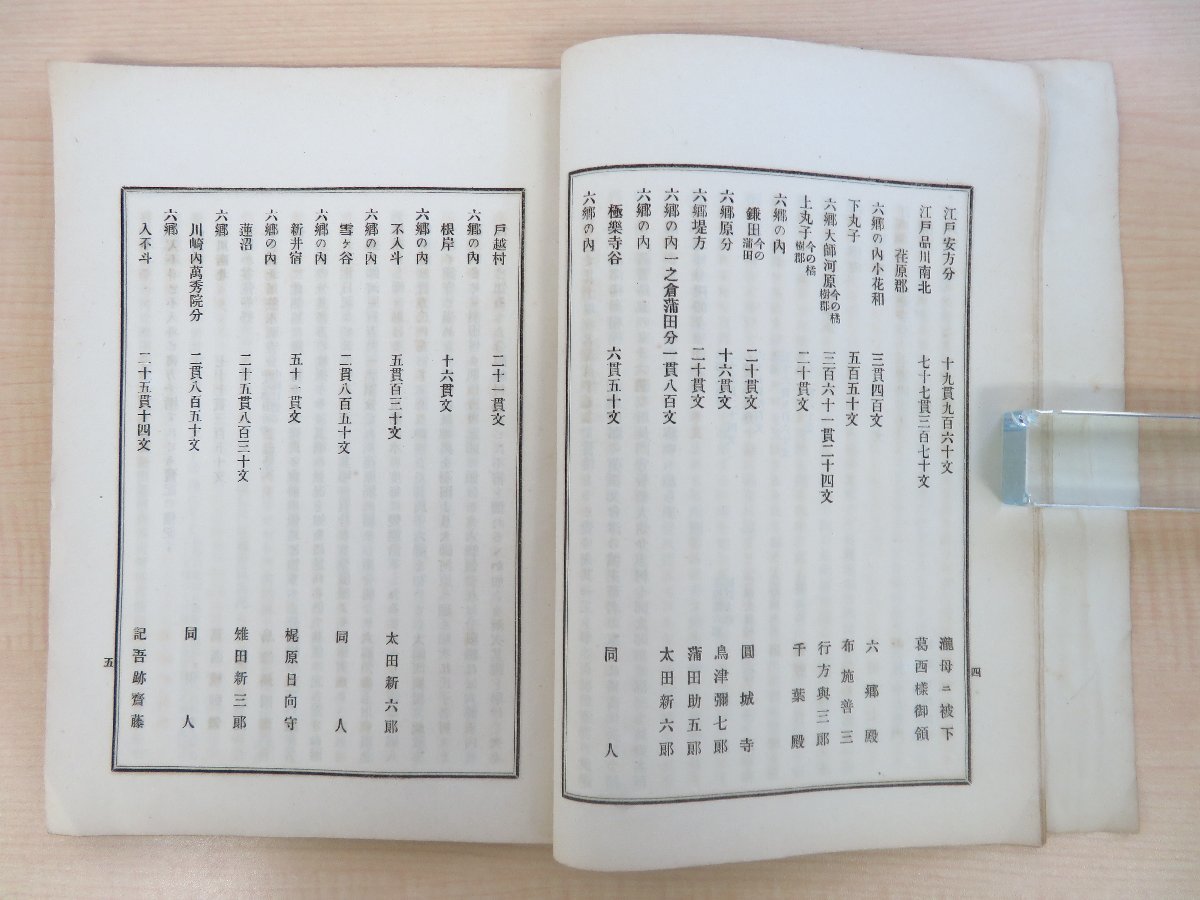 江戸安方分 十九貫九百六十文 瀧母ニ被下
江戸品川南北 七十七貫三百七十文 葛西樣御領
荏原郡
六鄕の內小花和 三貫四百文 六鄕殿
下丸子 五百五十文 布施善三
六鄕大師河原今の橘樹郡 三百六十一貫二十四文 行方與三郞
上丸子今の橘樹郡 二十貫文 千葉殿
六鄕の內
鎌田今の蒲田 二十貫文 圓城寺
六鄕原分 十六貫文 島津彌七郞
六鄕堤方 二十貫文 蒲田助五郞
六鄕の內一之倉蒲田分 一貫八百文 太田新六郞
六鄕の內
極樂寺谷 六貫五十文 同人
六鄕の內
四
戸越村 二十一貫文
六鄕の內
根岸 十六貫文
六鄕の內
不入斗 五貫百三十文 太田新六郞
六鄕の內
雪ヶ谷 二貫八百五十文 同人
六鄕の內
新井宿 五十二貫文 梶原日向守
六鄕の內
蓮沼 二十五貫八百三十文 雉田新三郞
六鄕
川崎內萬秀院分 二貫八百五十文 同人
六鄕
入不斗 二十五貫十四文 記吾跡齊藤
五